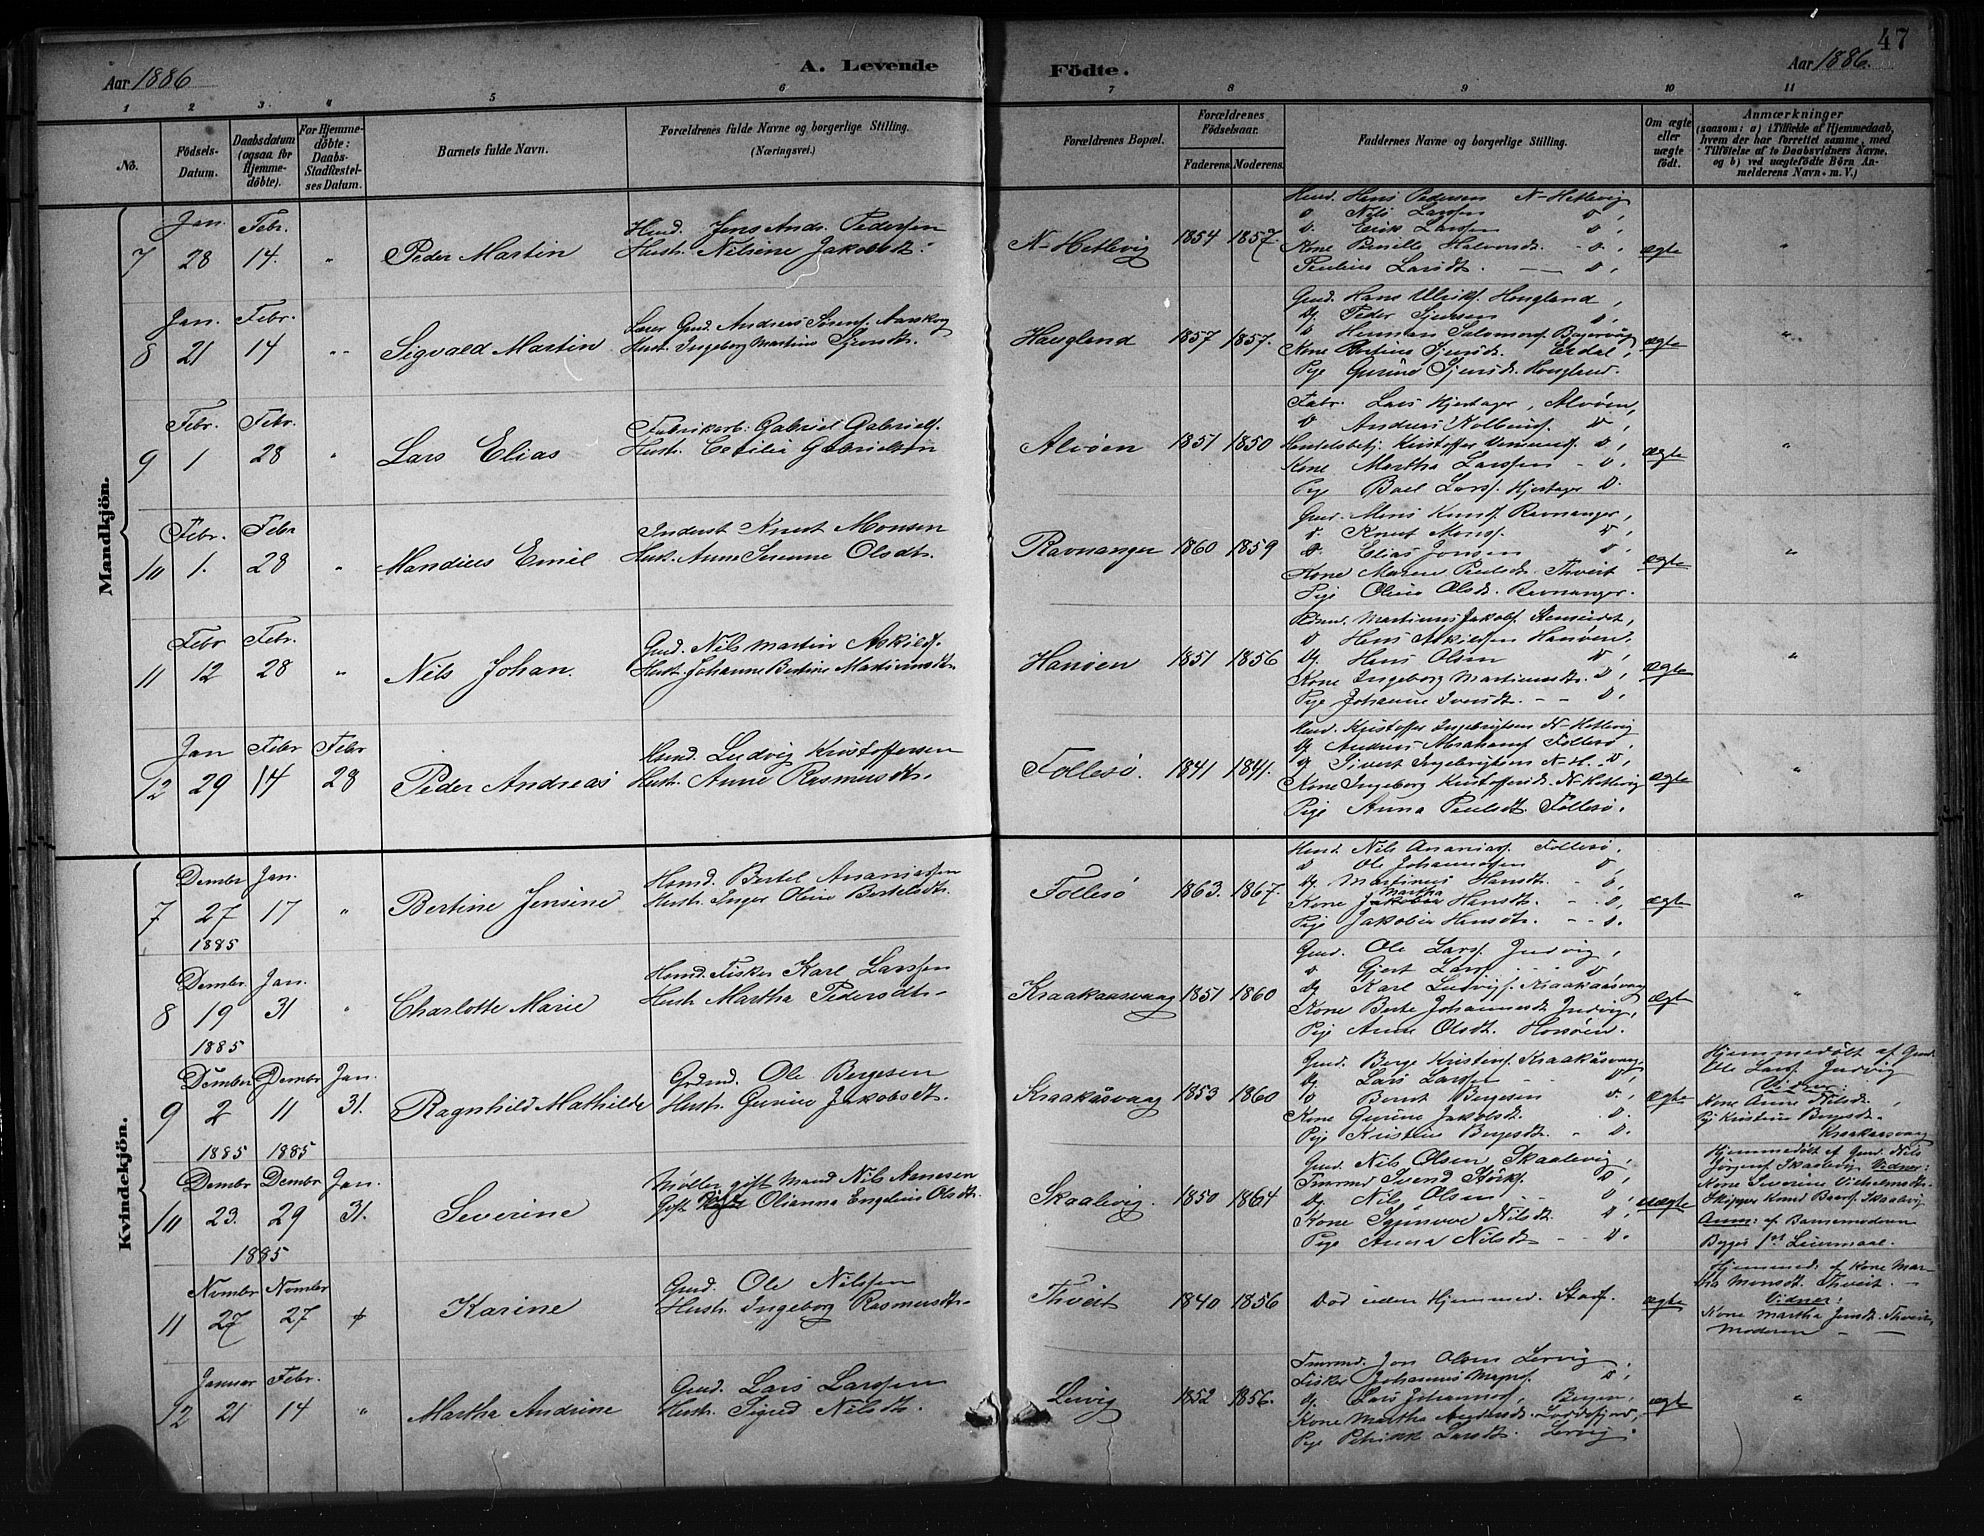 47
Aar 1886
A. Levende
Födte.
Aar 1886.
1 2 3. 4 5 6 7 8 9 10 11
Nö.
Födsels-Datum.
Daabsdatum (ogsaa for Hjemme-döbte).
For Hjemme-döbte: Daabs-Stadfæstel-ses Datum.
Barnets fulde Navn.
Forældrenes fulde Navne og borgerlige Stilling. (Næringsvei.)
Forældrenes Bopæl.
Forældrenes Födselsaar.
Faderens. Moderens.
Faddernes Navne og borgerlige Stilling.
Om ægte eller uægte födt.
Anmærkninger
(saasom: a) i Tilfælde af Hjemmedaab, hvem der har forrettet samme, med Tilföielse af to Daabsvidners Navne, og b) ved uægtefödte Börn Anmelderens Navn m. V.)
Mandkjön.
7 Jan. 28 Febr. 14. " Peder Martin
Husm. Jens Andr. Pedersen
Hustr. Nilsine Jakobsdt.
N-Hetlevig 1854 1857.
Husm. Hans Pedersen N-Hetlevig
D Nils Larssen D,
D. Erik Larssen D,
Kone Pernille Halvorsdt. - D.
Pauline Larsdt. — D,
ægte "
8 Jan. 21 Febr. 14 " Sigvald Martin
Hustr. Ingeborg Martine Sjursdt.
Haugland 1857 1857.
Gmd. Hans Ulriks. Haugland,
Ug. Peder Sjursen D,
Pige Gurine Sjursdt. Haugland.
ægte "
9 Febr. 1 Febr. 28 " Lars Elias
Fabrikarb: Gabriel Gabriels.
Hustr. Cecilia Gabrielsen
Alvöen 1851 1850
Fabr. Lars Hjertager, Alvöen,
Kone Martha Larssen - D.
Pige Boel Larsf. Hjertager D.
ægte "
10 Febr. 1. Febr 28 " Mandius Emil
Inderst Knut Monsen
Hust. Anna Serine Olsdt.
Ravnanger 1860 1859
Gmd. Mons Knuts. Ravnanger,
D. Knut Mons. D,
D. Elias Jonsen D.
Kone Maren Paulsdt. Thveit
Pige Oline Olsdt. Ravnanger.
ægte "
11 Febr 12 Febr. 28 " Nils Johan.
Gmd. Nils Martin Askilds.
Hustr. Johanne Bertine Martinusdtr
Hanöen 1851 1856
D Hans Askildsen Hanöen,
Ug. Hans Olsen D,
Kone Ingeborg Martinusdt. D,
Pige Johanne Iversdt. - - D,
ægte "
12 Jan 29 Febr 14 Febr 28 Peder Andreas
Husmd. Ludvig Kristoffersen
Hustr. Anne Rasmusdt.
Follesö. 1841 1841.
Husm. Kristoffer Ingebrigtsen N-Hetlevig
Ug. Andreas Abrahams. Follesö,
Ug. Sivert Ingebrigtsen N-H. D,
Kone Ingeborg Kristoffersdt. N-Hetlevig
Pige Anna Paulsdt. Follesö.
ægte "
Kvindekjön.
7 Dembr 27 1885 Jan. 17 " Bertine Jensine
Husmd. Bertel Ananiassen
Hustr. Inger Oline Bertelsdtr.
Follesö 1863. 1867.
Husmd. Nils Ananias. Follesö,
D Ole Johannessen D
Ug. Martinus Hansdt. - D,
Kone Martha Hansdt. - - D,
Pige Jakobia Hansdt. - - D.
ægte "
8 Dembr. 19 1885 Jan. 31 " Charlotte Marie
Husmd. Fisker Karl Larssen
Hustr. Martha Pedersdtr.
Kraakaasvaag 1851 1860
Gmd. Ole Lars. Juvig,
D Gjert Lars. - - D
Ug Karl Ludvigs. Kraakaasvaag
Kone Berte Johannesdt. Juvig,
Pige Anna Olsdt. Hanöen.
ægte "
9 Dembr 2 1885 Dembr 11 1885 Jan. 31. Ragnhild Mathilde
Grdmd. Ole Bergesen
Hustr. Gurine Jakobsdt.
Kraakåsvaag 1853 1860
Gmd. Berge Kristens. Kraakåsvaag
Ug Lars Larssen - D,
D Bernt Bergesen D.,
Kone Gurine Jakobsdt. D.
Pige Kristine Bergesdt. - D.
ægte
Hjemmedöbt af Gmd.
Ole Lars. Juvig
Vidner:
Kone Anna Nilsdt.,
Pg Kristine Bergesdt.
Kraakaasvaag
10 Dembr 23. Dembr 29 1885 Jan. 31. Severine
Möller gift Mand Nils Arnesen
Gift Pige Olianna Engeline Olsdt.
Skaalevig 1850 1864
Gmd. Nils Olsen Skaalevig,
Tmrmd. Svend Störks. D,
Ug Nils Olsen - - D,
Kone Synnove Nilsdt. D,
Pige Anna Nilsdt. - - D.
uægte
Hjemmedöbt af Gmd. Nils
Jörgens. Skaalevig Vidner:
Kone Severine Vilhelmsdt.
Anm: af Barnemoderen
Begges 1st Leiermaal.
11 Nvmbr 27 Nvmbr 27 + Karine
Gmd. Ole Nilssen
Hustr. Ingeborg Rasmusdtr.
Thveit 1840 1856
Död uden Hjemmed. Stadf.
ægte
Hjemmed. af Kone Mar-
tha Monsdt. Thveit. —
Vidner:
Kone Martha Jensdt. Thveit,
Moderen — —
12 Januar 21 Febr. 14 " Martha Andrine
Gmd. Lars Larssen
Hustr. Sigrid Nilsdtr.
Lervig 1852 1856.
Tmrmd. Jon Olsen Lervig,
Ug. Lars Johannes. Bergen,
Kone Martha Andersdt. Loddefjord,
Pige Petrikke Larsdt. Lervig.
ægte "